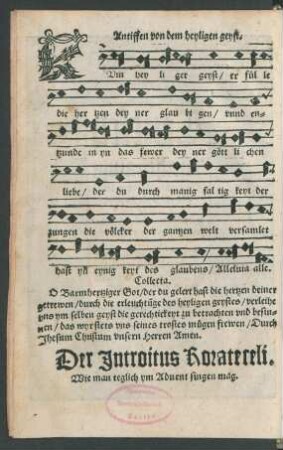 Antiffen von dem heyligen geyst.
Kum hey li ger geyst / er fül le
die her tzen dey ner glau bi gen / vnnd en-
tzunde in yn das fewer dey ner gött li chen
liebe / der du durch manig fal tig keyt der
zungen die völcker der gantzen welt versamlet
hast yn eynig keyt des glaubens / Alleluia alle.
Collecta.
O Barmhertziger Got / der du gelert hast die hertzen deiner
getrewen / durch die erleuchtūge des heyligen geystes / verleihe
vns ym selben geyst die gerechtickeyt zu betrachten vnd besin-
nen / das wyr stets vns seines trostes mügen frewen / Durch
Jhesum Christum vnsern Herren Amen.
Der Introitus Rorate celi.
Wie man teglich ym Aduent singen mag.